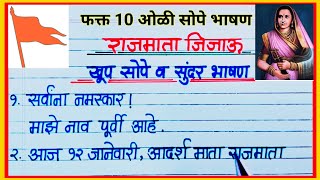 फक्त 10 ओळी सोपे भाषण
राजमाता जिजाऊ
खूप सोपे व सुंदर भाषण
१. सर्वांना नमस्कार!
माझे नाव पूर्वी आहे.
२. आज १२ जानेवारी, आदर्श माता राजमाता